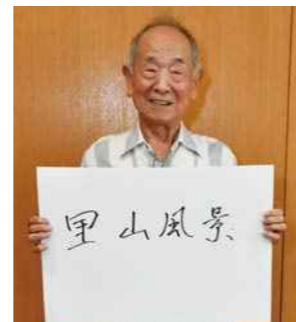 里山風景